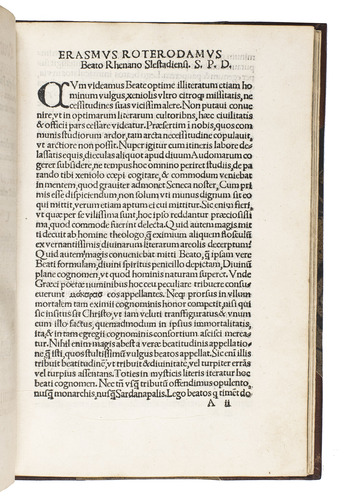 ERASMVS ROTERODAMVS
Beato Rhenano Slestadiensi. S. P. D.
CVm videamus Beate optime illiteratum etiam ho
minum vulgus, xeniolis vltro citroq; missitatis, ne
cessitudines suas vicissim alere. Non putaui conue
nire, vt in optimarum literarum cultoribus, hæc ciuilitatis
& officii pars cessare videatur. Præsertim ī nobis, quos com
munis studiorum ardor, tam arcta necessitudine copulauit,
vt arctiore non possit. Nuper igitur cum itineris labore de
lassatis equis, dieculas aliquot apud diuum Audomarum co
gerer subsidere, ne tempus hoc omnino periret studiis, de pa
rando tibi xeniolo cœpi cogitare, & commodum veniebat
in mentem, quod grauiter admonet Seneca noster, Cum pri
mis esse dispiciendum, non solum vti munus dignum sit eo
qui mittit, verum etiam aptum ei cui mittitur. Sic enim fieri,
vt quæ per se vilissima sunt, hoc ipso reddantur præciosissi
ma, quod commode fuerint delecta. Quid autem magis mit
ti decuit ab homine theologo, quam eximium aliquem flosculū
ex vernantissimis, diuinarum literarum areolis decerptum?
Quid autem magis conueniebat mitti Beato, quam ipsam vere
Beati formulam, diuini spiritus penicillo depictam, Diuinū
plane cognomen, vt quod hominis naturam superet. Vnde
Græci poetæ numinibus hoc ceu peculiare tribuere consue
uerunt μάκαρας eos appellantes. Neq; prorsus in vllum
mortalem tam eximii cognominis honor competit, nisi qui
sic insitus sit Christo, vt iam veluti transfiguratus & vnum
cum isto factus, quemadmodum in ipsius immortalitatis,
ita, & in tam egregii cognominis consortium ascisci merea
tur. Nihil enim magis abest a veræ beatitudinis appellatio
ne, quam isti, quos stultissimum vulgus beatos appellat, Sic em̄ illis
tribuit beatitudinem, vt tribuit & diuinitatē, vel turpiter errās
vel turpius assentans. Toties in mysticis literis iteratur hoc
beati cognomen. Nec tn̄ vsquam tributū offendimus opulento,
nusquam monarchis, nusquam Sardanapalis. Lego beatos qui timēt do
A ii